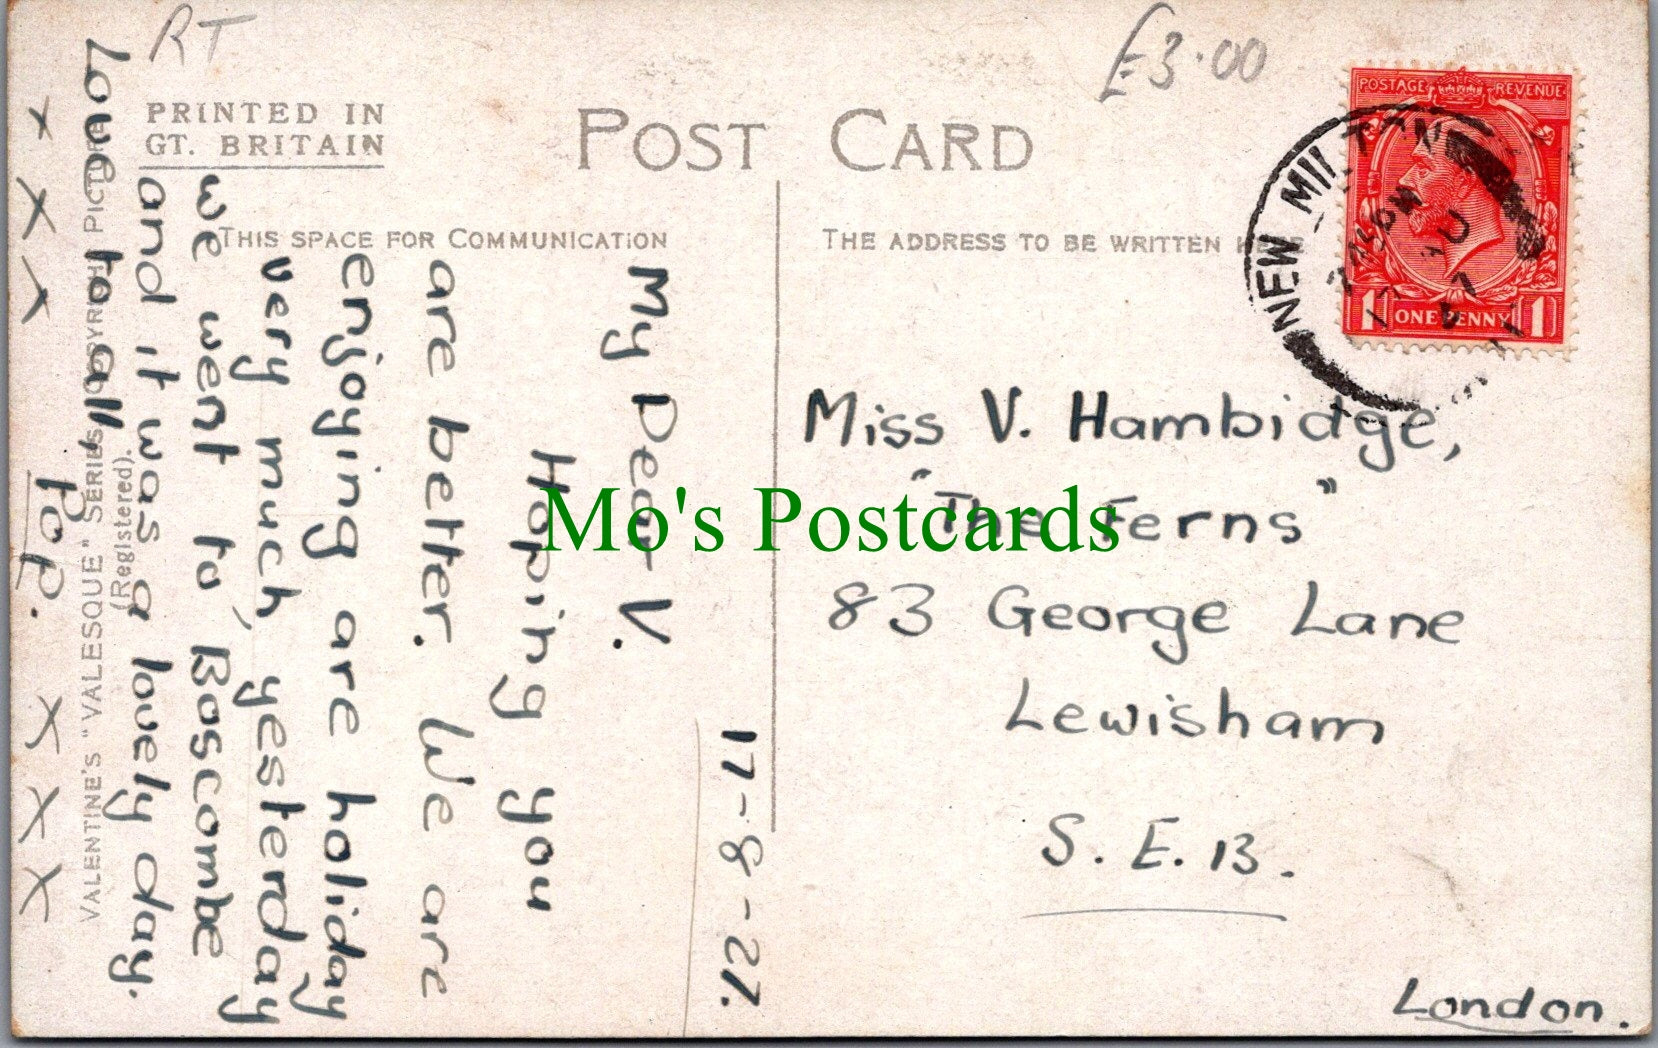 RT
£3.00
PRINTED IN
GT. BRITAIN
POST CARD
THIS SPACE FOR COMMUNICATION
THE ADDRESS TO BE WRITTEN
POSTAGE REVENUE
1 ONE PENNY 1
NEW MILTON
17-8-27.
My Dear V.
Hoping you
are better. We are
enjoying are holiday
very much, yesterday
we went to, Boscombe
and it was a lovely day.
Love to all,
Pop.
X X X X X X
VALENTINE'S "VALESQUE" SERIES COPYRIGHT PICTURE
(Registered).
Miss V. Hambidge,
"The Ferns"
83 George Lane
Lewisham
S. E. 13.
London.
Mo's Postcards